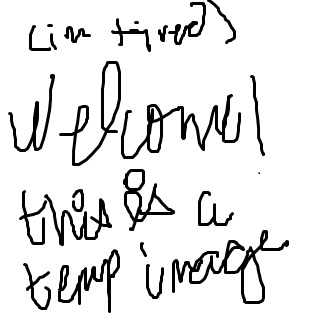 (im tired)
Welcome!
this is a
temp image